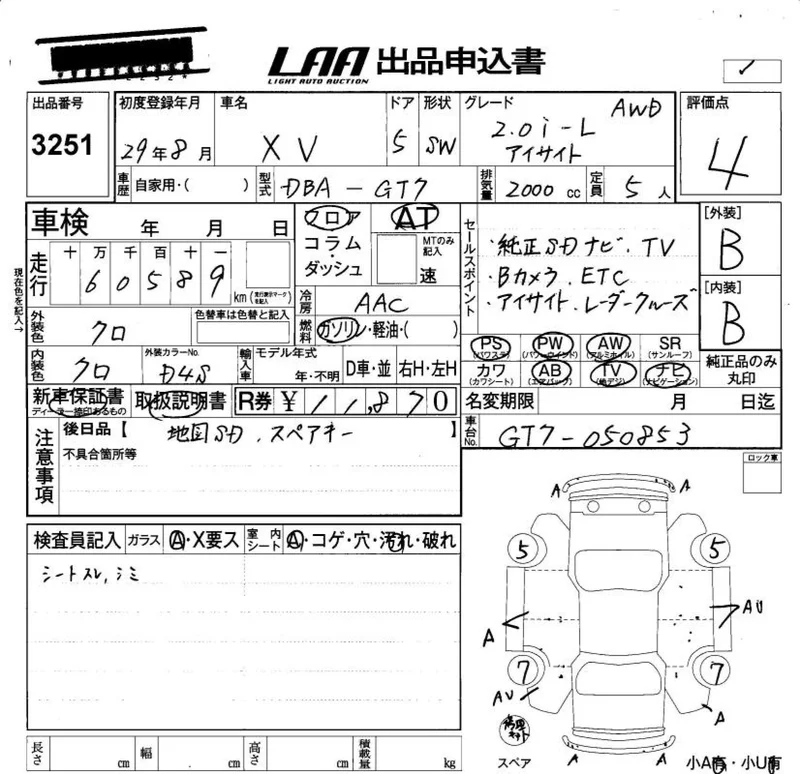 LAA 出品申込書
LIGHT AUTO AUCTION
出品番号 3251
初度登録年月 29年8月
車名 XV
ドア 5
形状 SW
グレード 2.0i-L AWD
アイサイト
評価点 4
車歴 自家用・( )
型式 DBA-GT7
排気量 2000 cc
定員 5人
車検 年 月 日
フロア
コラム・
ダッシュ
AT
MTのみ記入
速
セールスポイント
・純正SDナビ. TV
・Bカメラ. ETC
・アイサイト.レーダークルーズ
[外装] B
[内装] B
現在色を記入→
走行 十万千百十一
605889 km
(走行表示マークを記入)
冷房 AAC
燃料 ガソリン・軽油・( )
外装色 クロ
色替車は色替と記入
内装色 クロ
外装カラーNo. D4S
輸入車 モデル年式
年・不明
D車・並 右H・左H
PS (パワステ)
PW (パワーウインド)
AW (アルミホイル)
SR (サンルーフ)
カワ (カワシート)
AB (エアバック)
TV (地デジ)
ナビ (ナビゲーション)
純正品のみ丸印
新車保証書
ディーラー捺印あるもの
取扱説明書
R券 ¥ 11,870
名変期限 月 日迄
車台No. GT7-050853
注意事項
後日品【 地図SD. スペアキー 】
不具合箇所等
ロック車
検査員記入
ガラス A・X要ス
室内シート A・コゲ・穴・汚れ・破れ
シートスレ, シミ
A A
5 5
A AU
7 7
AU A
修理キット
スペア
A A
小A有・小U有
長さ cm 幅 cm 高さ cm 積載量 kg